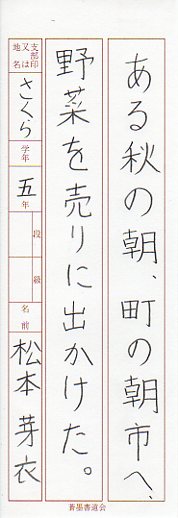 ある秋の朝、町の朝市へ、
野菜を売りに出かけた。
支部印又は地名 さくら 学年 五年 段 級 名前 松本芽衣
蒼墨書道会